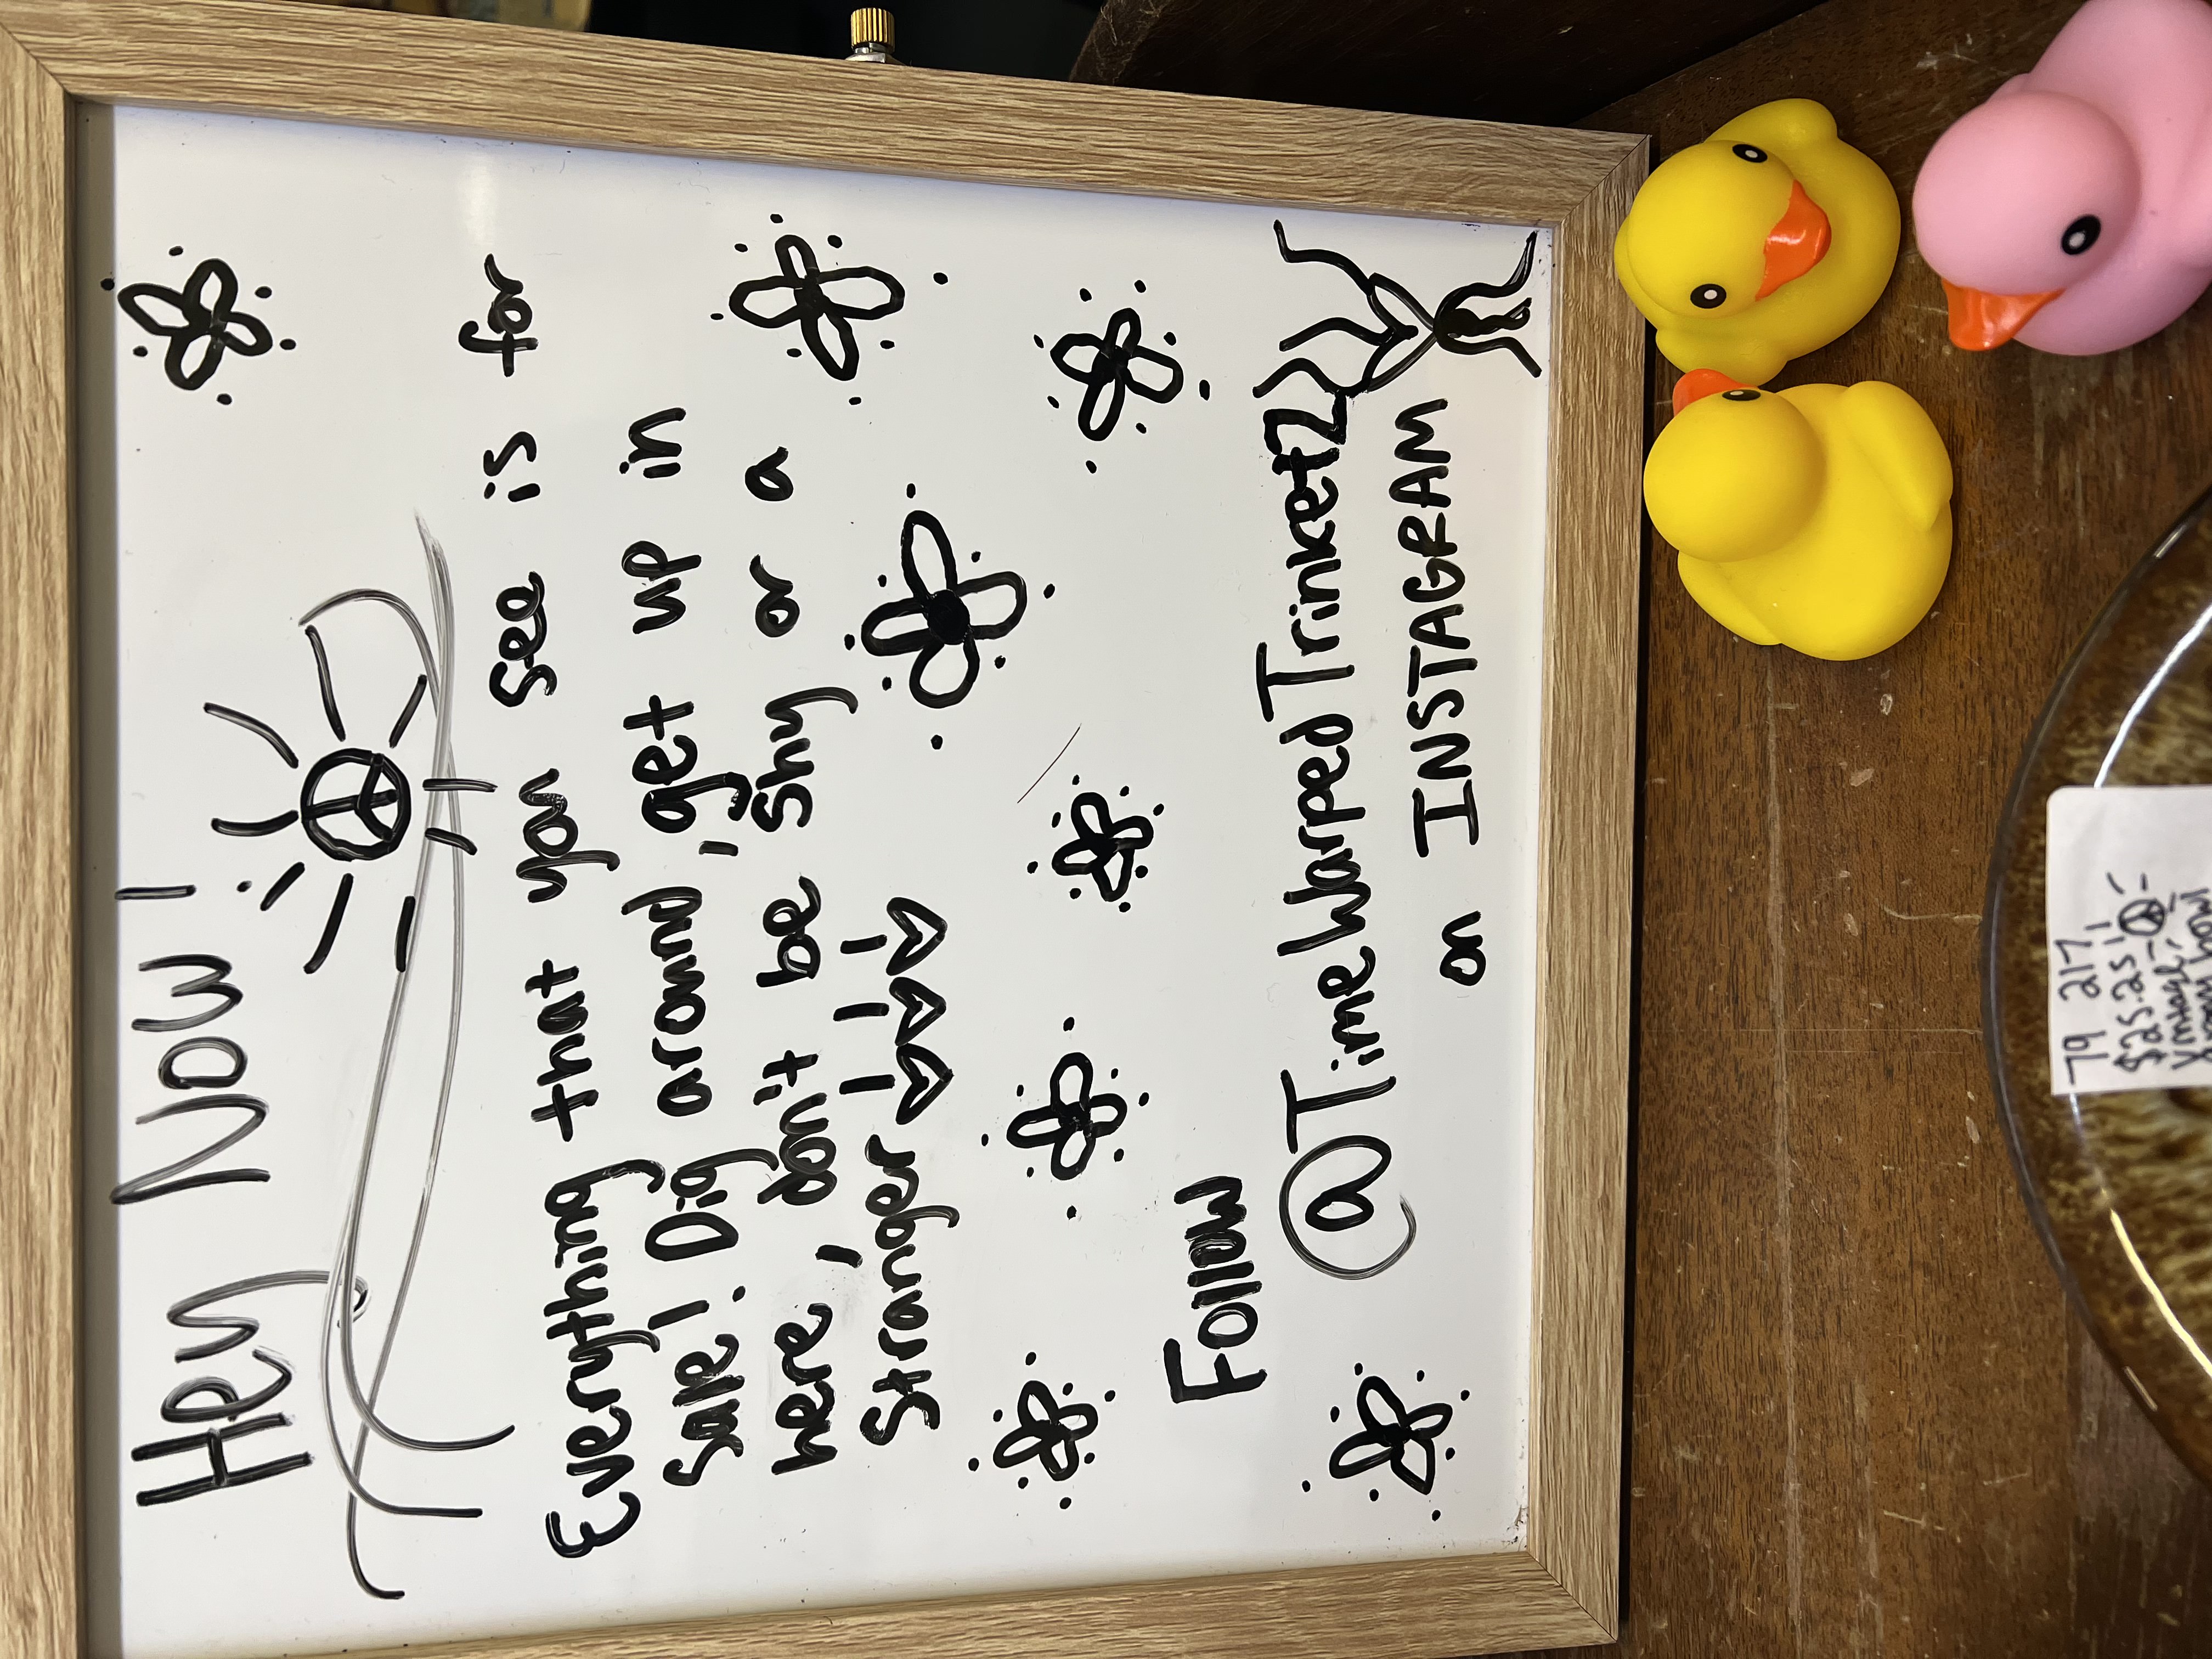 Hey Now!
Everything that you see is for
Sale! Dig around, get up in
here, don't be shy or a
stranger!!!
Follow
@TimeWarpedTrinketZ
on INSTAGRAM
79 217
$25.25!!
Vintage
bowl